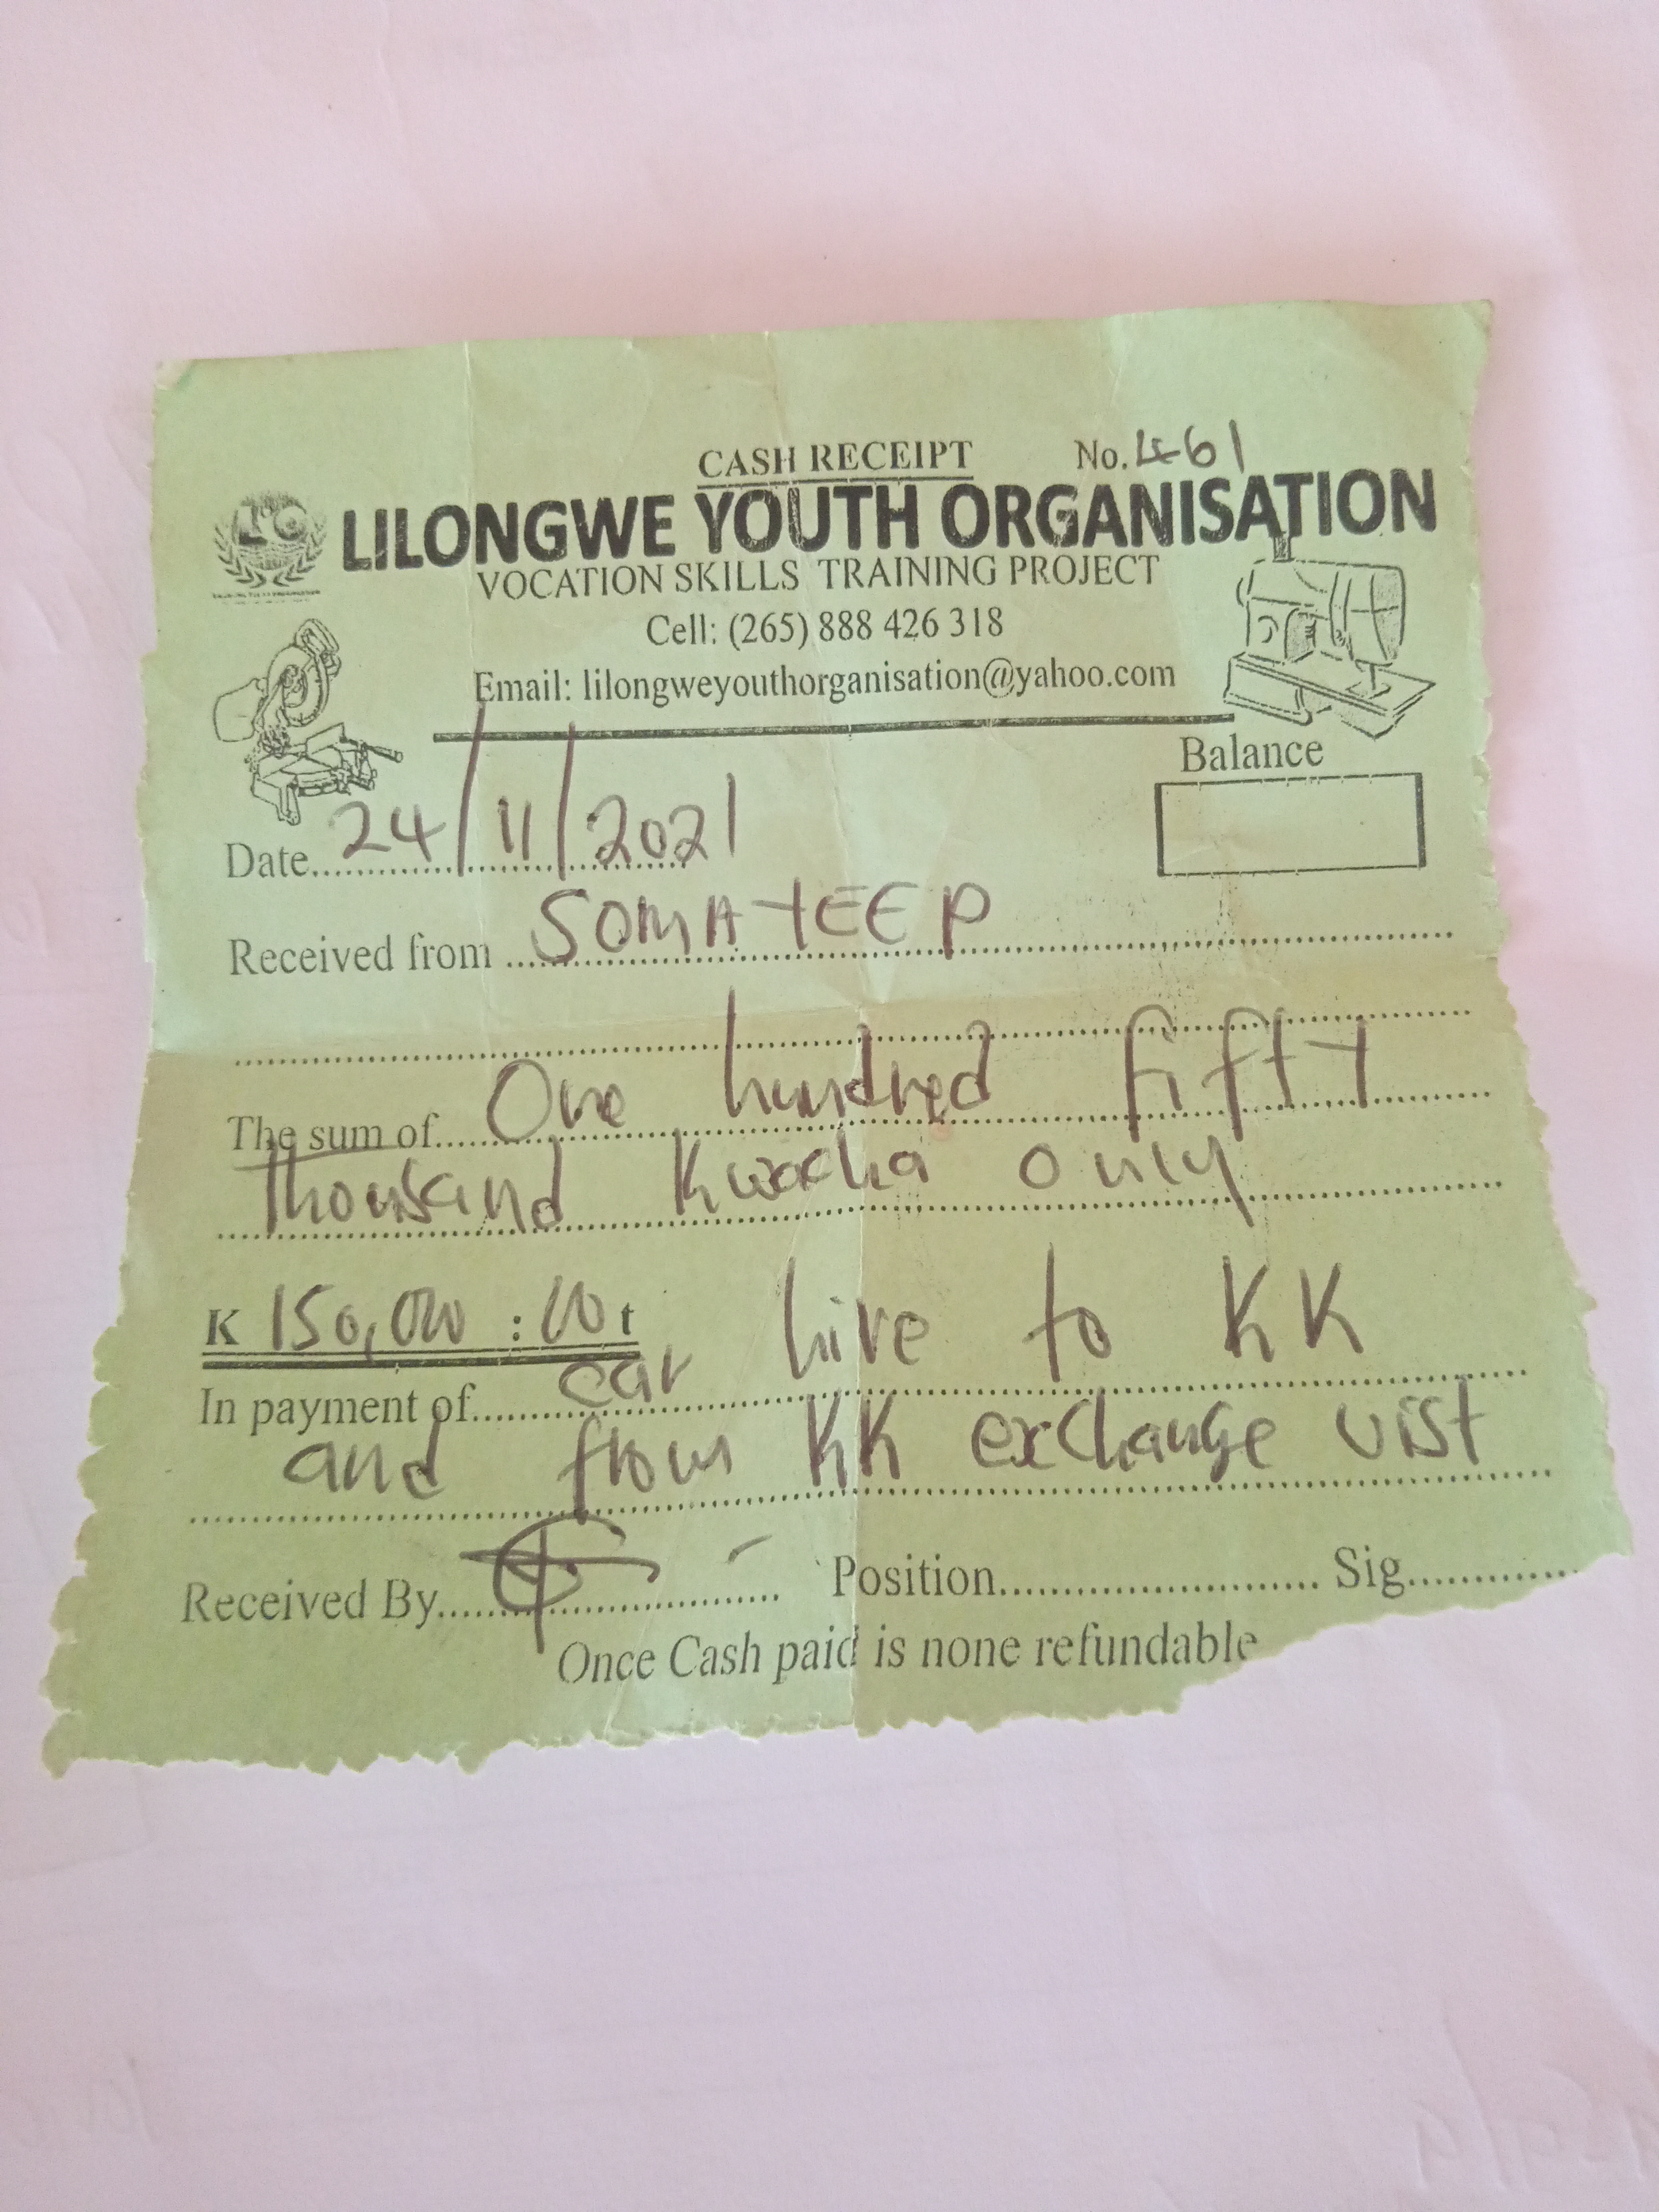 CASH RECEIPT No. 461
LILONGWE YOUTH ORGANISATION
VOCATION SKILLS TRAINING PROJECT
Cell: (265) 888 426 318
Email: lilongweyouthorganisation@yahoo.com
Balance
Date 24/11/2021
Received from SOMA TEEP
The sum of One hundred fifty
thousand Kwacha only
K 150,000 : 00 t
In payment of car hire to KK
and from KK exchange vist
Received By Position Sig
Once Cash paid is none refundable